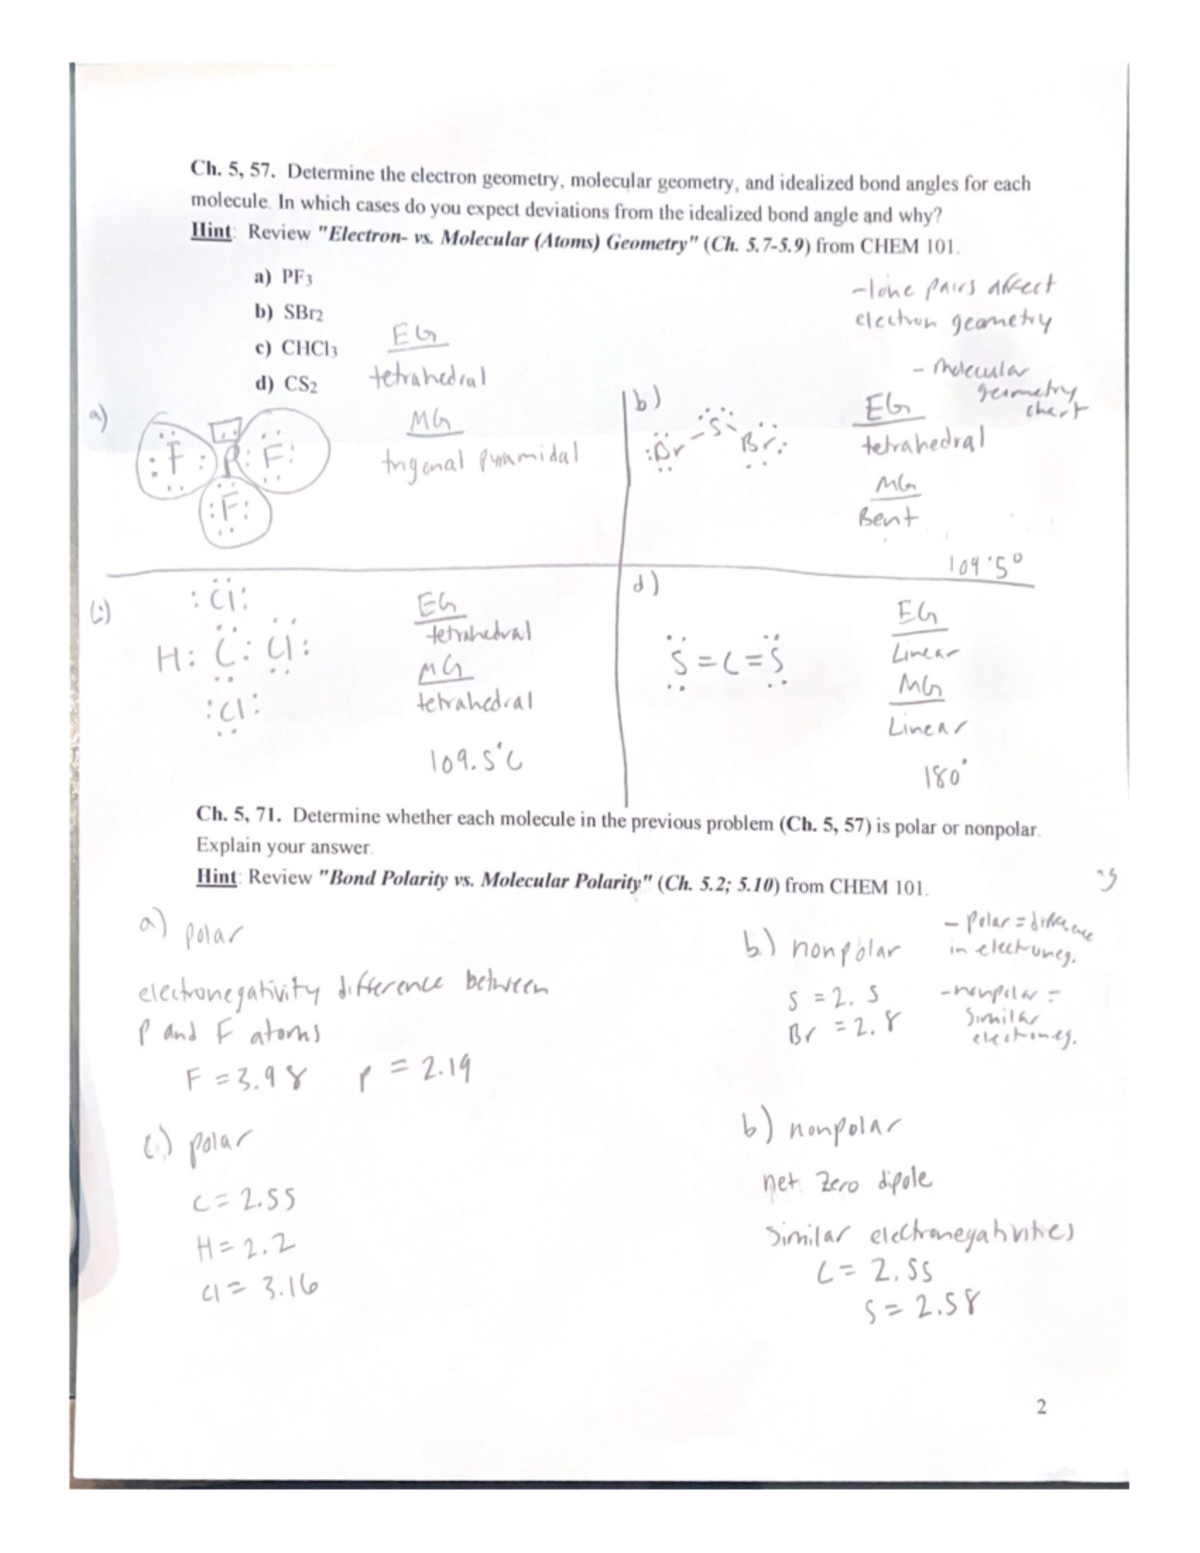 Ch. 5, 57. Determine the electron geometry, molecular geometry, and idealized bond angles for each
molecule. In which cases do you expect deviations from the idealized bond angle and why?
Hint: Review "Electron- vs. Molecular (Atoms) Geometry" (Ch. 5.7-5.9) from CHEM 101.
a) PF3
b) SBr2
c) CHCl3
d) CS2
-lone pairs affect
electron geometry
- Molecular
geometry
chart
a)
EG
tetrahedral
MG
trigonal pyramidal
:F: P :F:
:F:
b)
:Br - S - Br:
EG
tetrahedral
MG
Bent
109.5°
c)
:Cl:
H: C: Cl:
:Cl:
EG
tetrahedral
MG
tetrahedral
109.5°C
d)
S=C=S
EG
Linear
MG
Linear
180°
Ch. 5, 71. Determine whether each molecule in the previous problem (Ch. 5, 57) is polar or nonpolar.
Explain your answer.
Hint: Review "Bond Polarity vs. Molecular Polarity" (Ch. 5.2; 5.10) from CHEM 101.
a) polar
electronegativity difference between
P and F atoms
F = 3.98 P = 2.19
b) nonpolar
S = 2.5
Br = 2.8
- polar = difference
in electroneg.
-nonpolar =
similar
electroneg.
c) polar
C = 2.55
H = 2.2
Cl = 3.16
b) nonpolar
net zero dipole
similar electronegativities
C = 2.55
S = 2.58
2